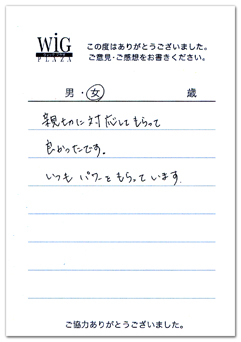 WiG
PLAZA
この度はありがとうございました。
ご意見・ご感想をお書きください。
男・女 歳
親切に対応してもらって
良かったです。
いつもパワーをもらっています。
ご協力ありがとうございました。